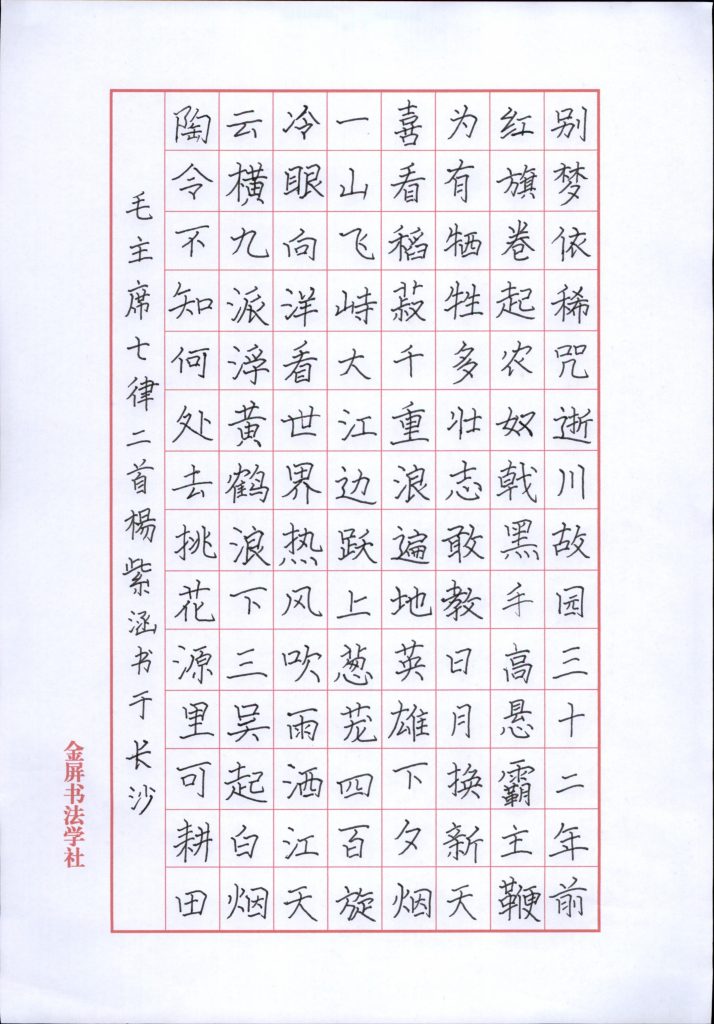 别梦依稀咒逝川故园三十二年前
红旗卷起农奴戟黑手高悬霸主鞭
为有牺牲多壮志敢教日月换新天
喜看稻菽千重浪遍地英雄下夕烟
一山飞峙大江边跃上葱茏四百旋
冷眼向洋看世界热风吹雨洒江天
云横九派浮黄鹤浪下三吴起白烟
陶令不知何处去挑花源里可耕田
毛主席七律二首楊紫涵书于长沙
金屏书法学社